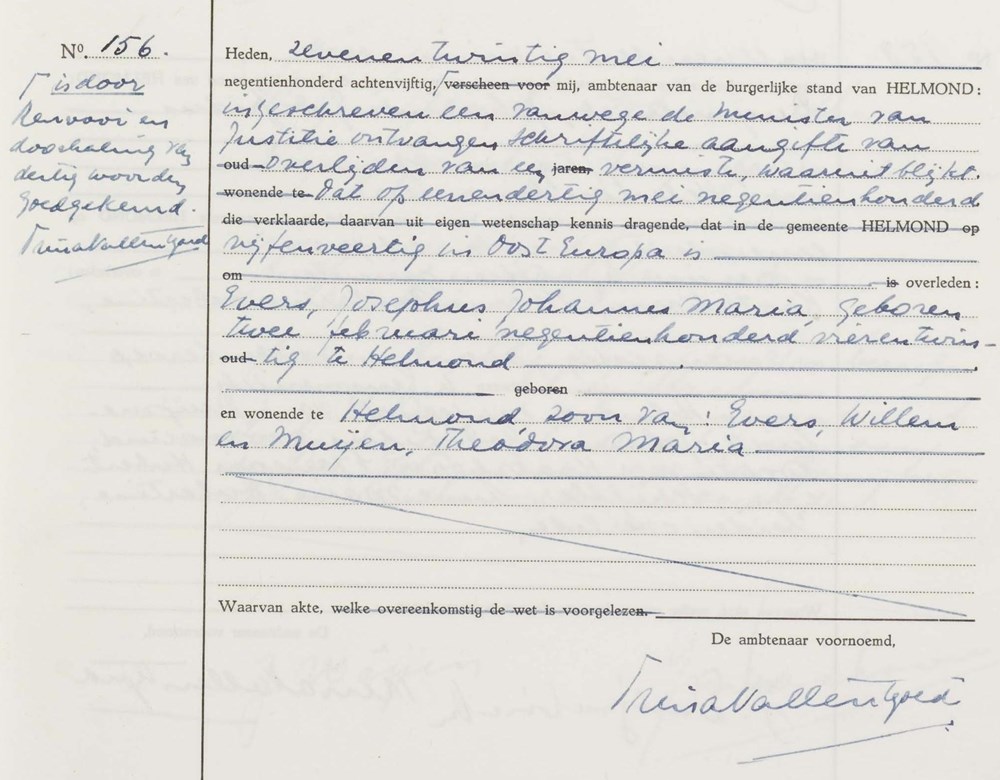 No. 156.
Γ is door
Renvooi en
doorhaling van
dertig woorden
goedgekeurd.
Heden, zevenentwintig mei
negentienhonderd achtenvijftig, Γ verscheen voor mij, ambtenaar van de burgerlijke stand van HELMOND:
ingeschreven een vanwege de Minister van
Justitie ontvangen schriftelijke aangifte van
oud overlijden van een jaren, vermiste, waaruit blijkt.
wonende te dat op eenendertig mei negentienhonderd
die verklaarde, daarvan uit eigen wetenschap kennis dragende, dat in de gemeente HELMOND op
vijfenveertig in Oost Europa is
om is overleden:
Evers, Josephus Johannes Maria, geboren
twee februari negentienhonderd vierentwin-
oud tig te Helmond
geboren
en wonende te Helmond, zoon van: Evers, Willem
en Muijen, Theodora Maria
Waarvan akte, welke overeenkomstig de wet is voorgelezen.
De ambtenaar voornoemd,